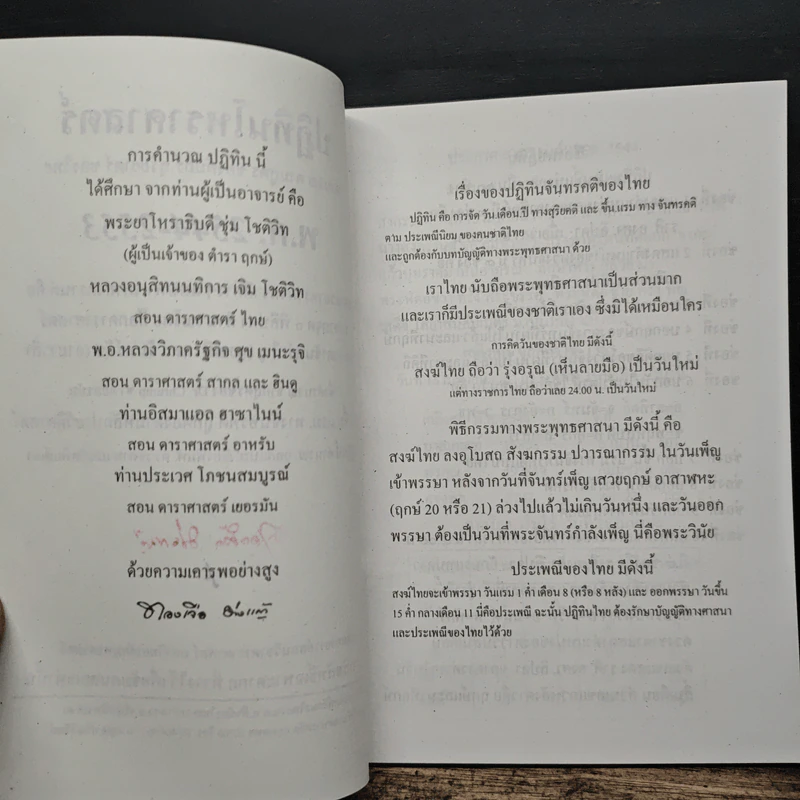 การคำนวณ ปฏิทิน นี้
ได้ศึกษา จากท่านผู้เป็นอาจารย์ คือ
พระยาโหราธิบดี ชุ่ม โชติวิท
(ผู้เป็นเจ้าของ ตำรา ฤกษ์)
หลวงอนุสิทนนทิการ เจิม โชติวิท
สอน ดาราศาสตร์ ไทย
พ.อ.หลวงวิภาครัฐกิจ ศุข เมนะรุจิ
สอน ดาราศาสตร์ สากล และ ฮินดู
ท่านอิสมาแอล ฮาซาไนน์
สอน ดาราศาสตร์ อาหรับ
ท่านประเวศ โภชนสมบูรณ์
สอน ดาราศาสตร์ เยอรมัน
ด้วยความเคารพอย่างสูง
เรื่องของปฏิทินจันทรคติของไทย
ปฏิทิน คือ การจัด วัน.เดือน.ปี ทางสุริยคติ และ ขึ้น.แรม ทาง จันทรคติ
ตาม ประเพณีนิยม ของคนชาติไทย
และถูกต้องกับบทบัญญัติทางพระพุทธศาสนา ด้วย
เราไทย นับถือพระพุทธศาสนาเป็นส่วนมาก
และเราก็มีประเพณีของชาติเราเอง ซึ่งมิได้เหมือนใคร
การคิดวันของชาติไทย มีดังนี้
สงฆ์ไทย ถือว่า รุ่งอรุณ (เห็นลายมือ) เป็นวันใหม่
แต่ทางราชการไทย ถือว่าเลย 24.00 น. เป็นวันใหม่
พิธีกรรมทางพระพุทธศาสนา มีดังนี้ คือ
สงฆ์ไทย ลงอุโบสถ สังฆกรรม ปวารณากรรม ในวันเพ็ญ
เข้าพรรษา หลังจากวันที่จันทร์เพ็ญ เสวยฤกษ์ อาสาฬหะ
(ฤกษ์ 20 หรือ 21) ล่วงไปแล้วไม่เกินวันหนึ่ง และวันออก
พรรษา ต้องเป็นวันที่พระจันทร์กำลังเพ็ญ นี่คือพระวินัย
ประเพณีของไทย มีดังนี้
สงฆ์ไทยจะเข้าพรรษา วันแรม 1 ค่ำ เดือน 8 (หรือ 8 หลัง) และ ออกพรรษา วันขึ้น
15 ค่ำ กลางเดือน 11 นี่คือประเพณี ฉะนั้น ปฏิทินไทย ต้องรักษาบัญญัติทางศาสนา
และประเพณีของไทยไว้ด้วย